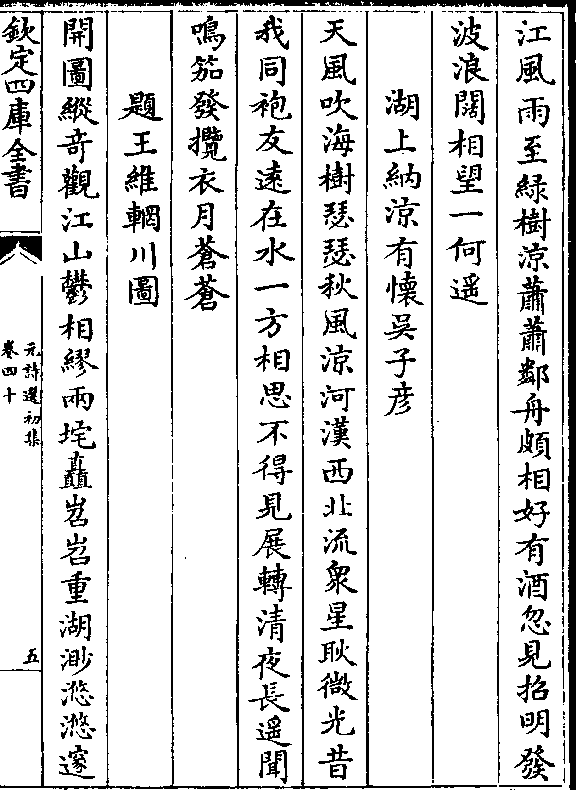 江風雨至綠樹涼蕭蕭鄰舟頗相好有酒忽見招明發
波浪闊相望一何遥
湖上納涼有懷吴子彦
天風吹海樹瑟瑟秋風涼河漢西北流衆星耿微光昔
我同袍友遠在水一方相思不得見展轉清夜長遥聞
鳴笳發攬衣月蒼蒼
題王維輞川圖
開圖縱竒觀江山鬱相繆兩垞矗岧岧重湖渺悠悠邃
欽定四庫全書
元詩選初集
卷四十
五